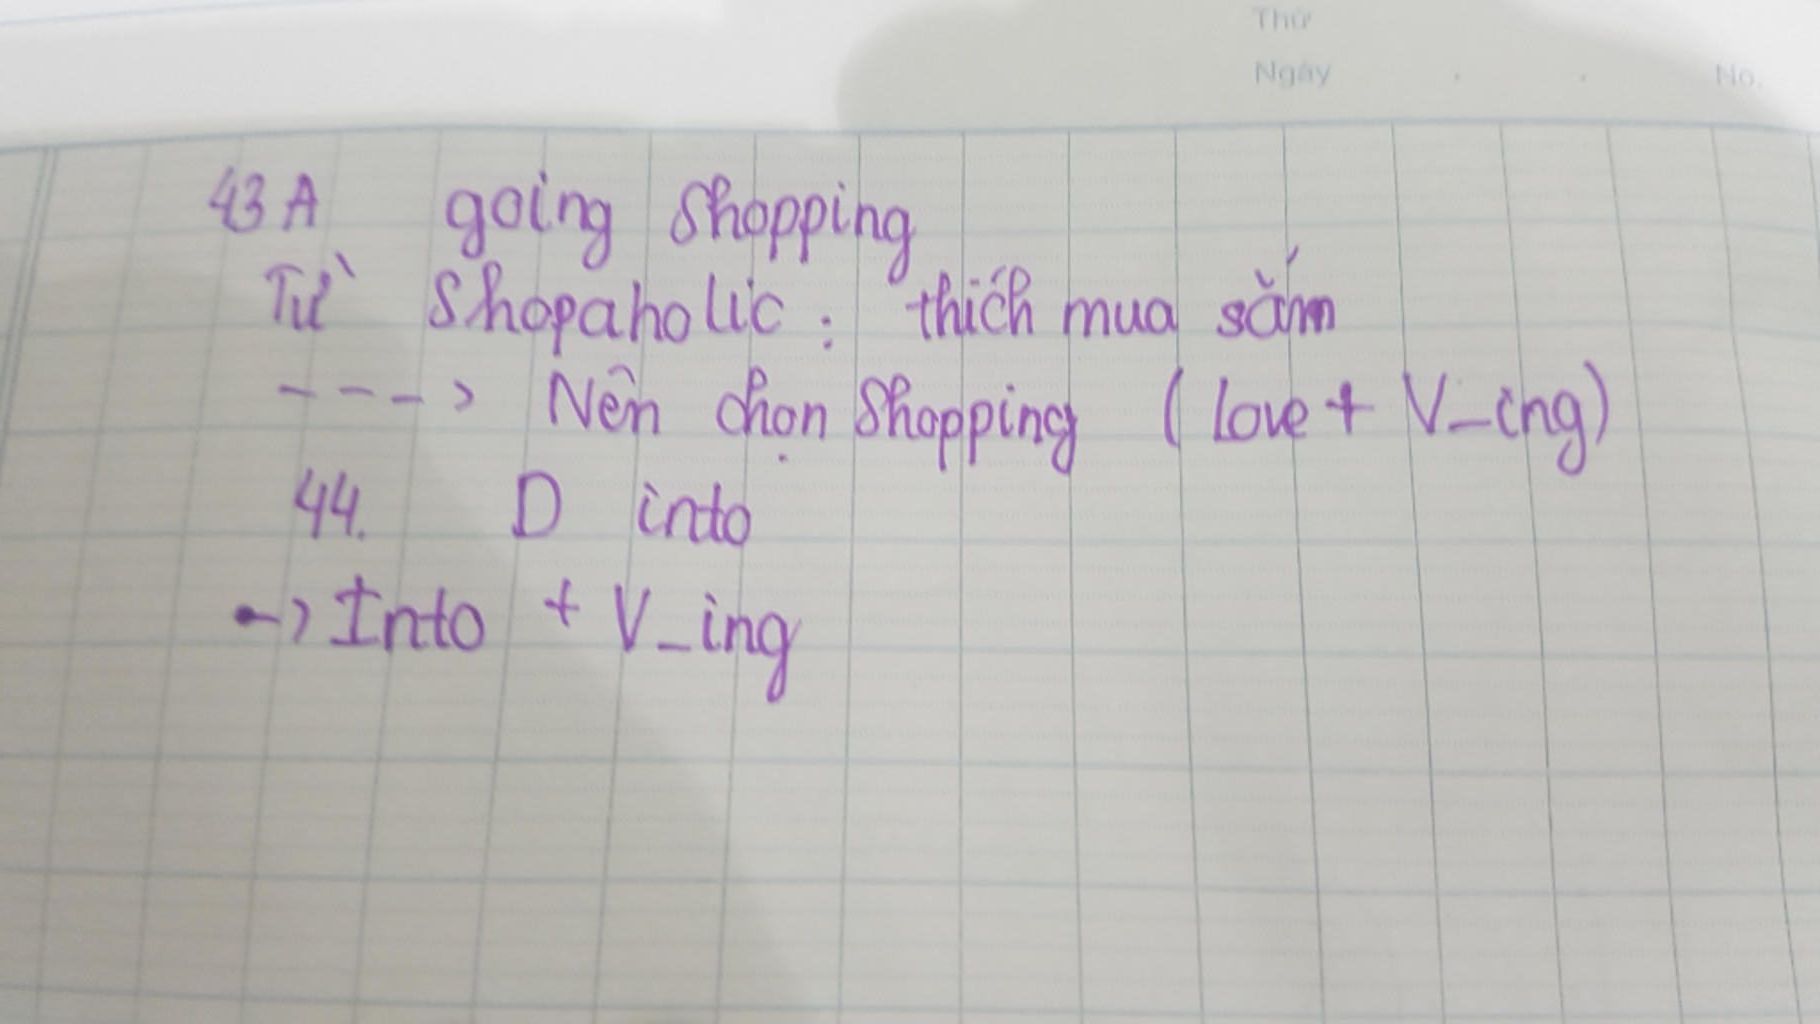 Thứ
Ngày No.
43 A going Shopping
Từ Shopaholic : thích mua sắm
----> Nên chọn Shopping ( love + V_ing)
44. D into
-> Into + V_ing